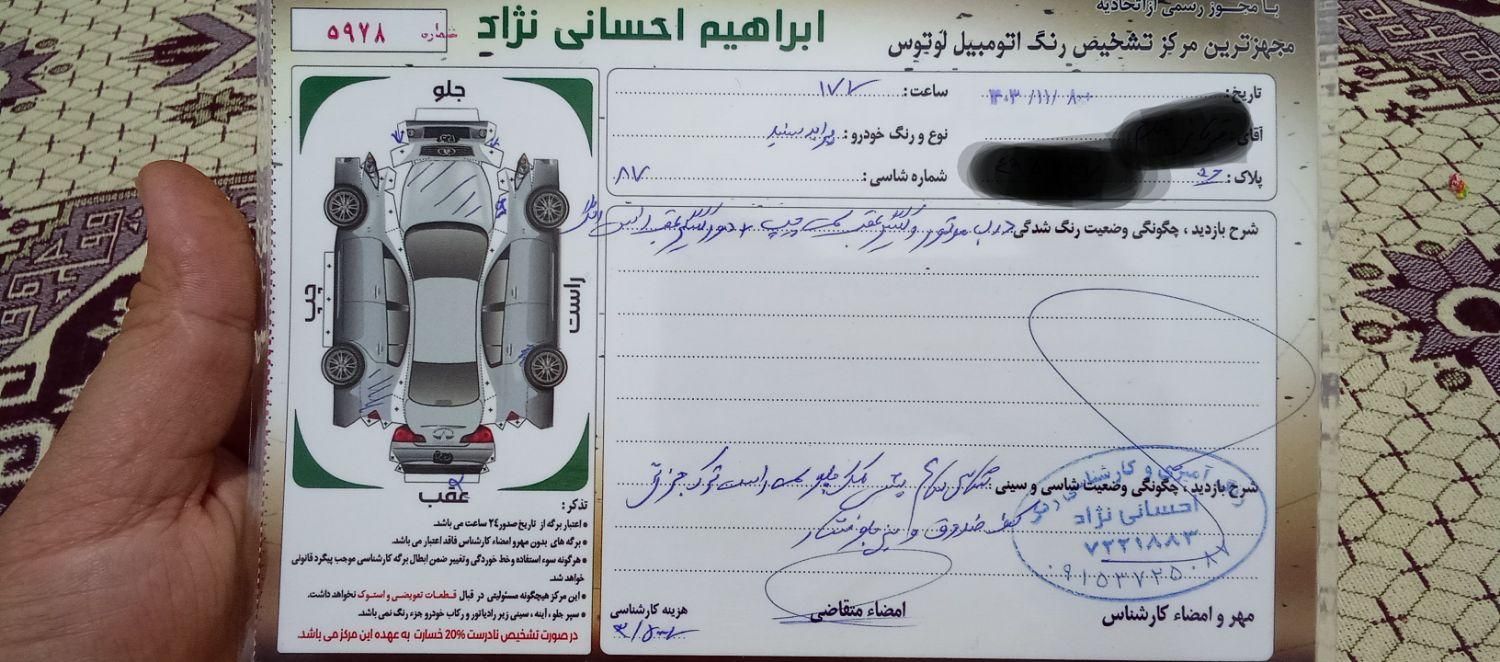 با مجوز رسمی از اتحادیه
ابراهیم احسانی نژاد
شماره ۵۹۷۸
مجهزترین مرکز تشخیص رنگ اتومبیل لوتوس
تاریخ: ۱۴۰۳/۱۱/۸
ساعت: ۱۷
آقای
نوع و رنگ خودرو: پراید سفید
پلاک:
شماره شاسی: ۸۷
جلو
چپ
راست
عقب
شرح بازدید ، چگونگی وضعیت رنگ شدگی: درب موتور و گلگیر عقب سمت چپ
شرح بازدید ، چگونگی وضعیت شاسی و سینی:
کف صندوق و
تذکر:
● اعتبار برگه از تاریخ صدور ۲۴ ساعت می باشد.
● برگه های بدون مهر و امضاء کارشناس فاقد اعتبار می باشد.
● هرگونه سوء استفاده و خط خوردگی و تغییر ضمن ابطال برگه کارشناسی موجب پیگرد قانونی
خواهد شد.
● این مرکز هیچگونه مسئولیتی در قبال قطعات تعویضی و استوک نخواهد داشت.
● سپر جلو ، آینه ، سینی زیر رادیاتور و رکاب خودرو جزء رنگ نمی باشد.
در صورت تشخیص نادرست 20% خسارت به عهده این مرکز می باشد.
احسانی نژاد
۷۲۲۱۸۸۳
مهر و امضاء کارشناس
امضاء متقاضی
هزینه کارشناسی